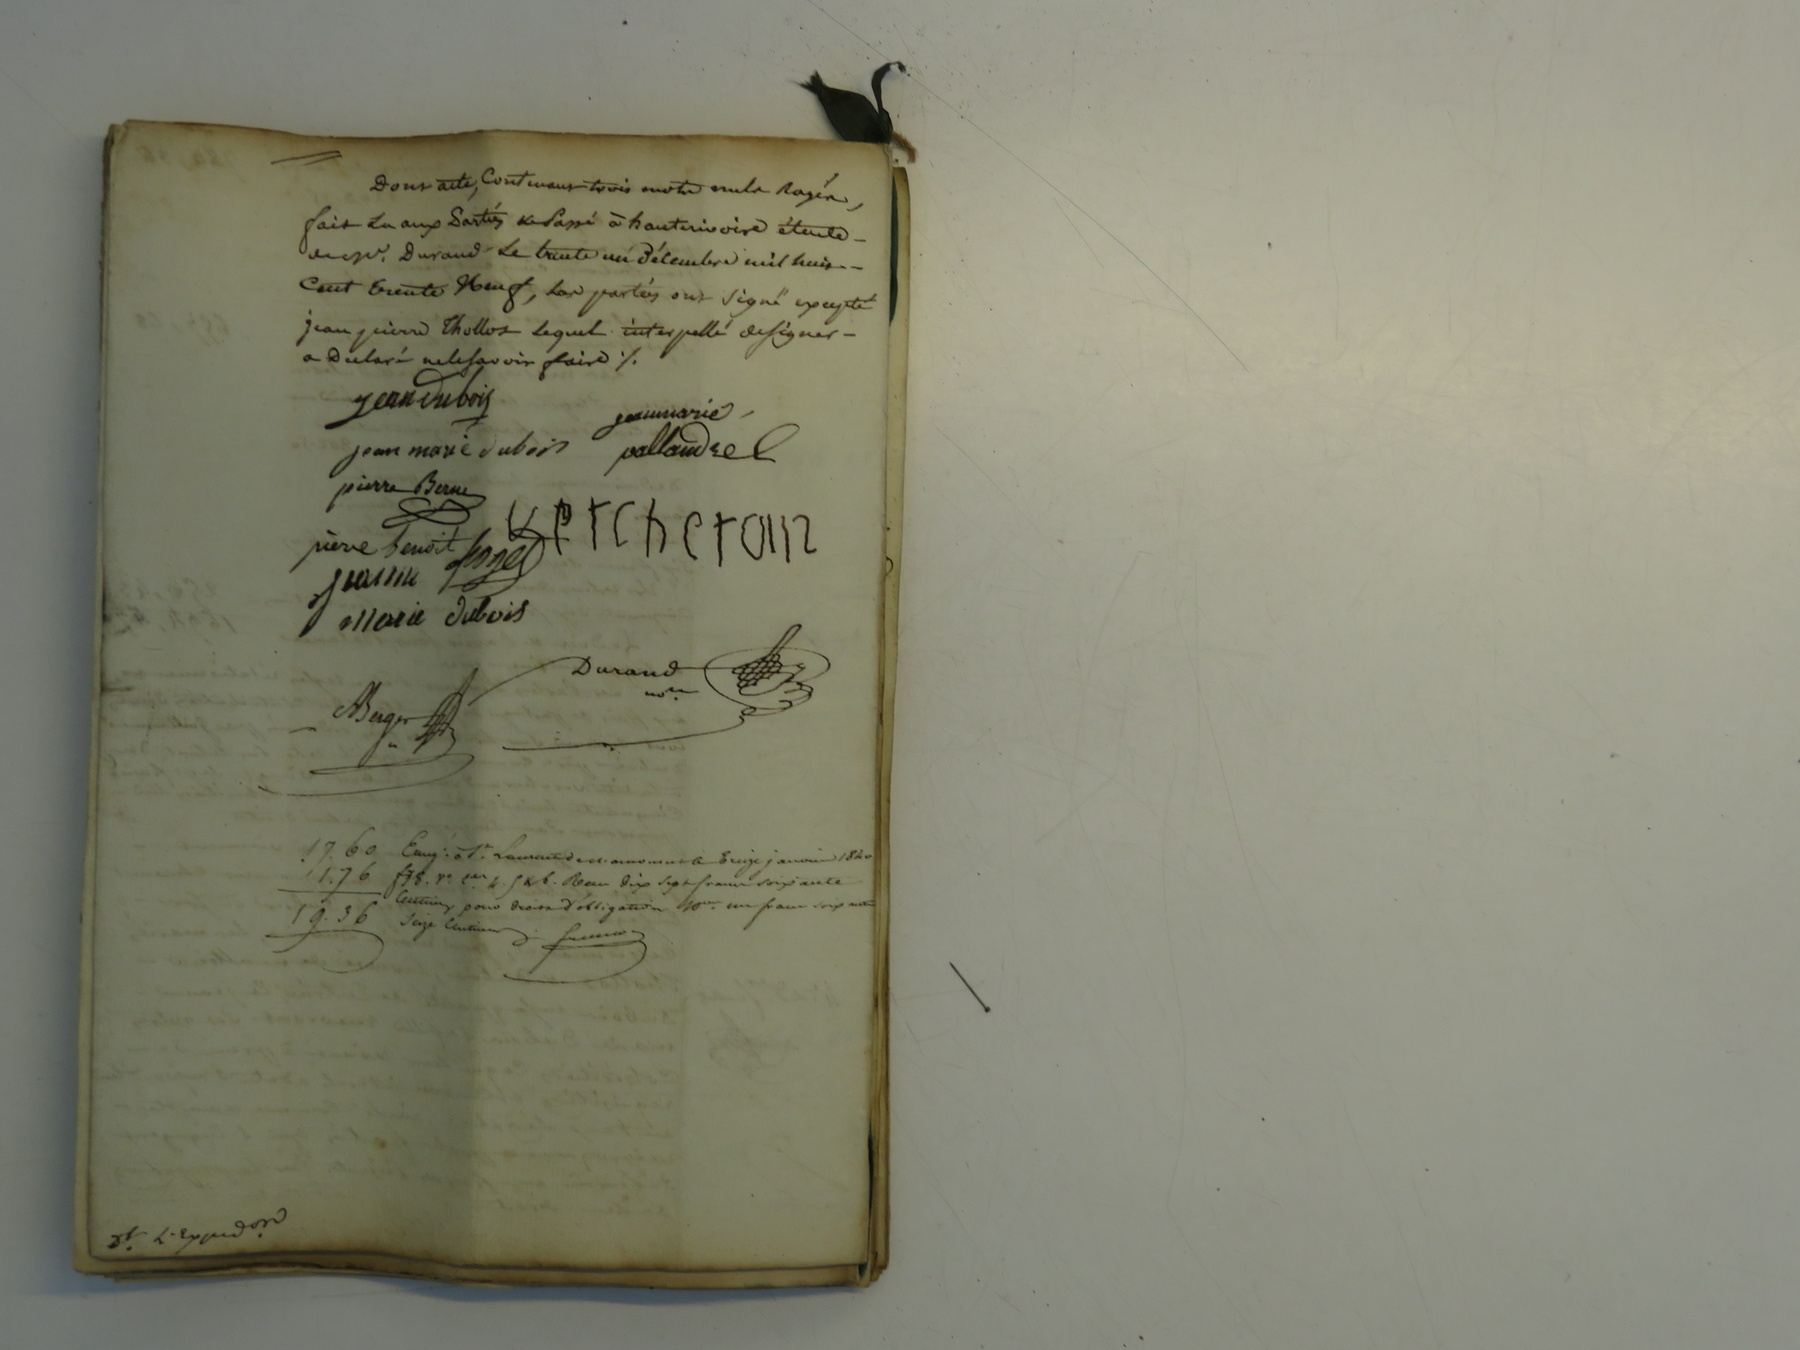 Dont acte, Contenant trois mots nuls Rayés,
fait Lu aux Parties & Passé à hauterivoire étude
de Me. Durand Le trente un Décembre mil huit
Cent trente Neuf, Les parties ont Signé excepté
jean pierre Thollot Lequel interpellé de signer
a Déclaré ne le savoir faire ./.
jean Dubois
jeanmarie
jean marie dubois
pierre Berne
vercheran
pierre benoit
marie dubois
Durand
nore
Berger
17.60 Enregé à St. Laurent de Chamousset le treize janvier 1840
1.76 f 78. vo. car 4. 5 & 6. Reçu dix sept francs soixante
19.36 Centimes pour droits d'obligation 10me. un franc soixante
Seize Centimes
L'Expedon.